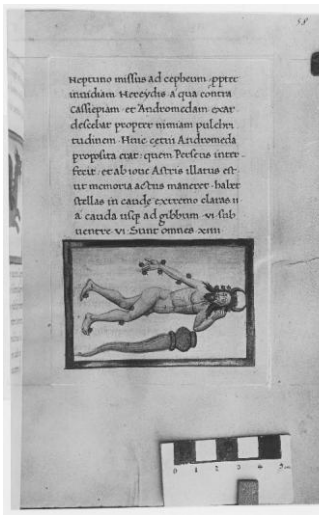 58
Neptuno missus ad cepheum ppter
inuidiam Nereydis a qua contra
Cassiepiam et Andromedam exar
descebat propter nimiam pulchri
tudinem Huic cetui Andromeda
proposita erat: quem Perseus inter
fecit et ab ioue Astris illatus est
ut memoria actus maneret habet
stellas in caude extremo claras ii
a cauda usq ad gibbum vi sub
uentre vi Sunt omnes xiiii
0 1 2 3 4 5